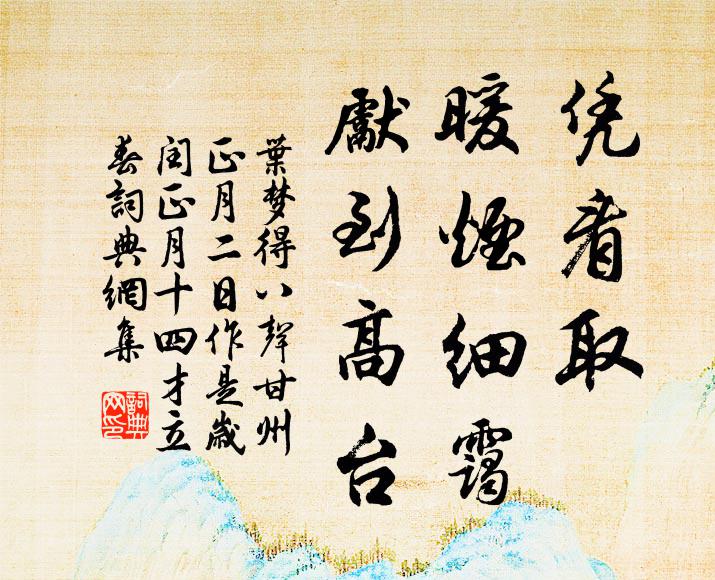 凭看取
暖烟细霭
献到高台
葉梦得八聲甘州
正月二日作是歲
闰正月十四才立
春詞典網集
詞典
网印